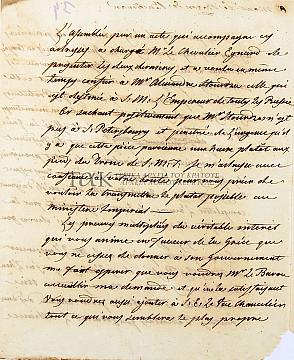 L'assemblée, par un acte qui accompagne ces
adresses a chargé Mr le Chevalier Eynard de
présenter les deux dernières, et a voulu en même
temps confier à Mr Alexandre Stourdza celle qui
est destinée à S. M. l'Empereur de toutes les Russies
Or sachant positivement que Mr Stourdza n'est
pas à St Petersbourg et pénétré de l'urgence qu'il
y a que cette pièce parvienne une heure plutôt aux
pieds du trône de S. M. I. je m'adresse avec
confiance à votre bonté pour vous prier de
vouloir la transmettre le plutôt possible au
ministère Impérial
Les preuves multipliées du véritable intérêt
qui vous anime en faveur de la Grèce que
vous ne cessez de donner à son Gouvernement
me fait espérer que vous voudrez Mr le Baron
accueillir ma demande et qu'en la satisfaisant
vous voudrez aussi ajouter à S. E. le Vice Chancelier
tout ce qui vous semblera le plus propre